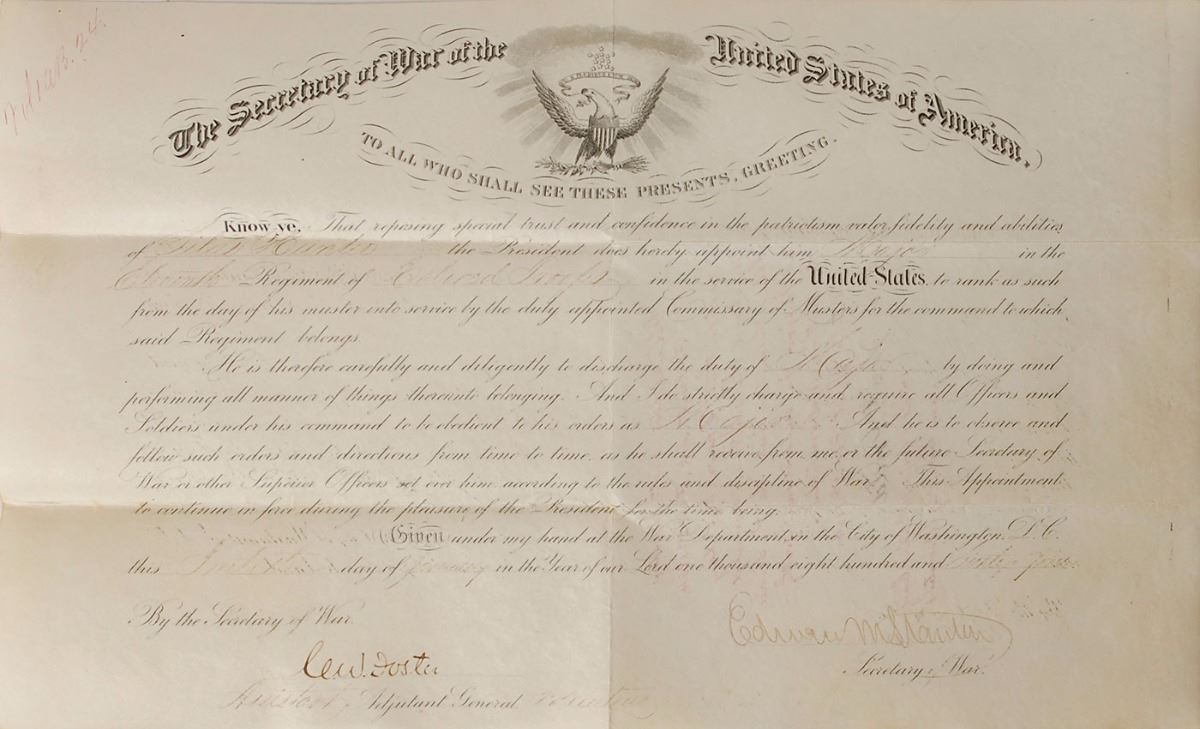 The Secretary of War of the United States of America.
TO ALL WHO SHALL SEE THESE PRESENTS, GREETING.
Know ye, That reposing special trust and confidence in the patriotism, valor, fidelity and abilities
of Hunter the President does hereby appoint him Major in the
Regiment of Colored Troops in the service of the United States, to rank as such
from the day of his muster into service by the duly appointed Commissary of Musters for the command to which
said Regiment belongs.
He is therefore carefully and diligently to discharge the duty of Major by doing and
performing all manner of things thereunto belonging. And I do strictly charge and require all Officers and
Soldiers under his command to be obedient to his orders as Major And he is to observe and
follow such orders and directions from time to time, as he shall receive from me, or the future Secretary of
War, or other Superior Officers set over him according to the rules and discipline of War. This Appointment
to continue in force during the pleasure of the President for the time being.
Given under my hand at the War Department, in the City of Washington, D. C.
this day of January in the Year of our Lord one thousand eight hundred and
By the Secretary of War.
Edwin M Stanton
Secretary of War.
C. W. Foster
Assistant Adjutant General Volunteers